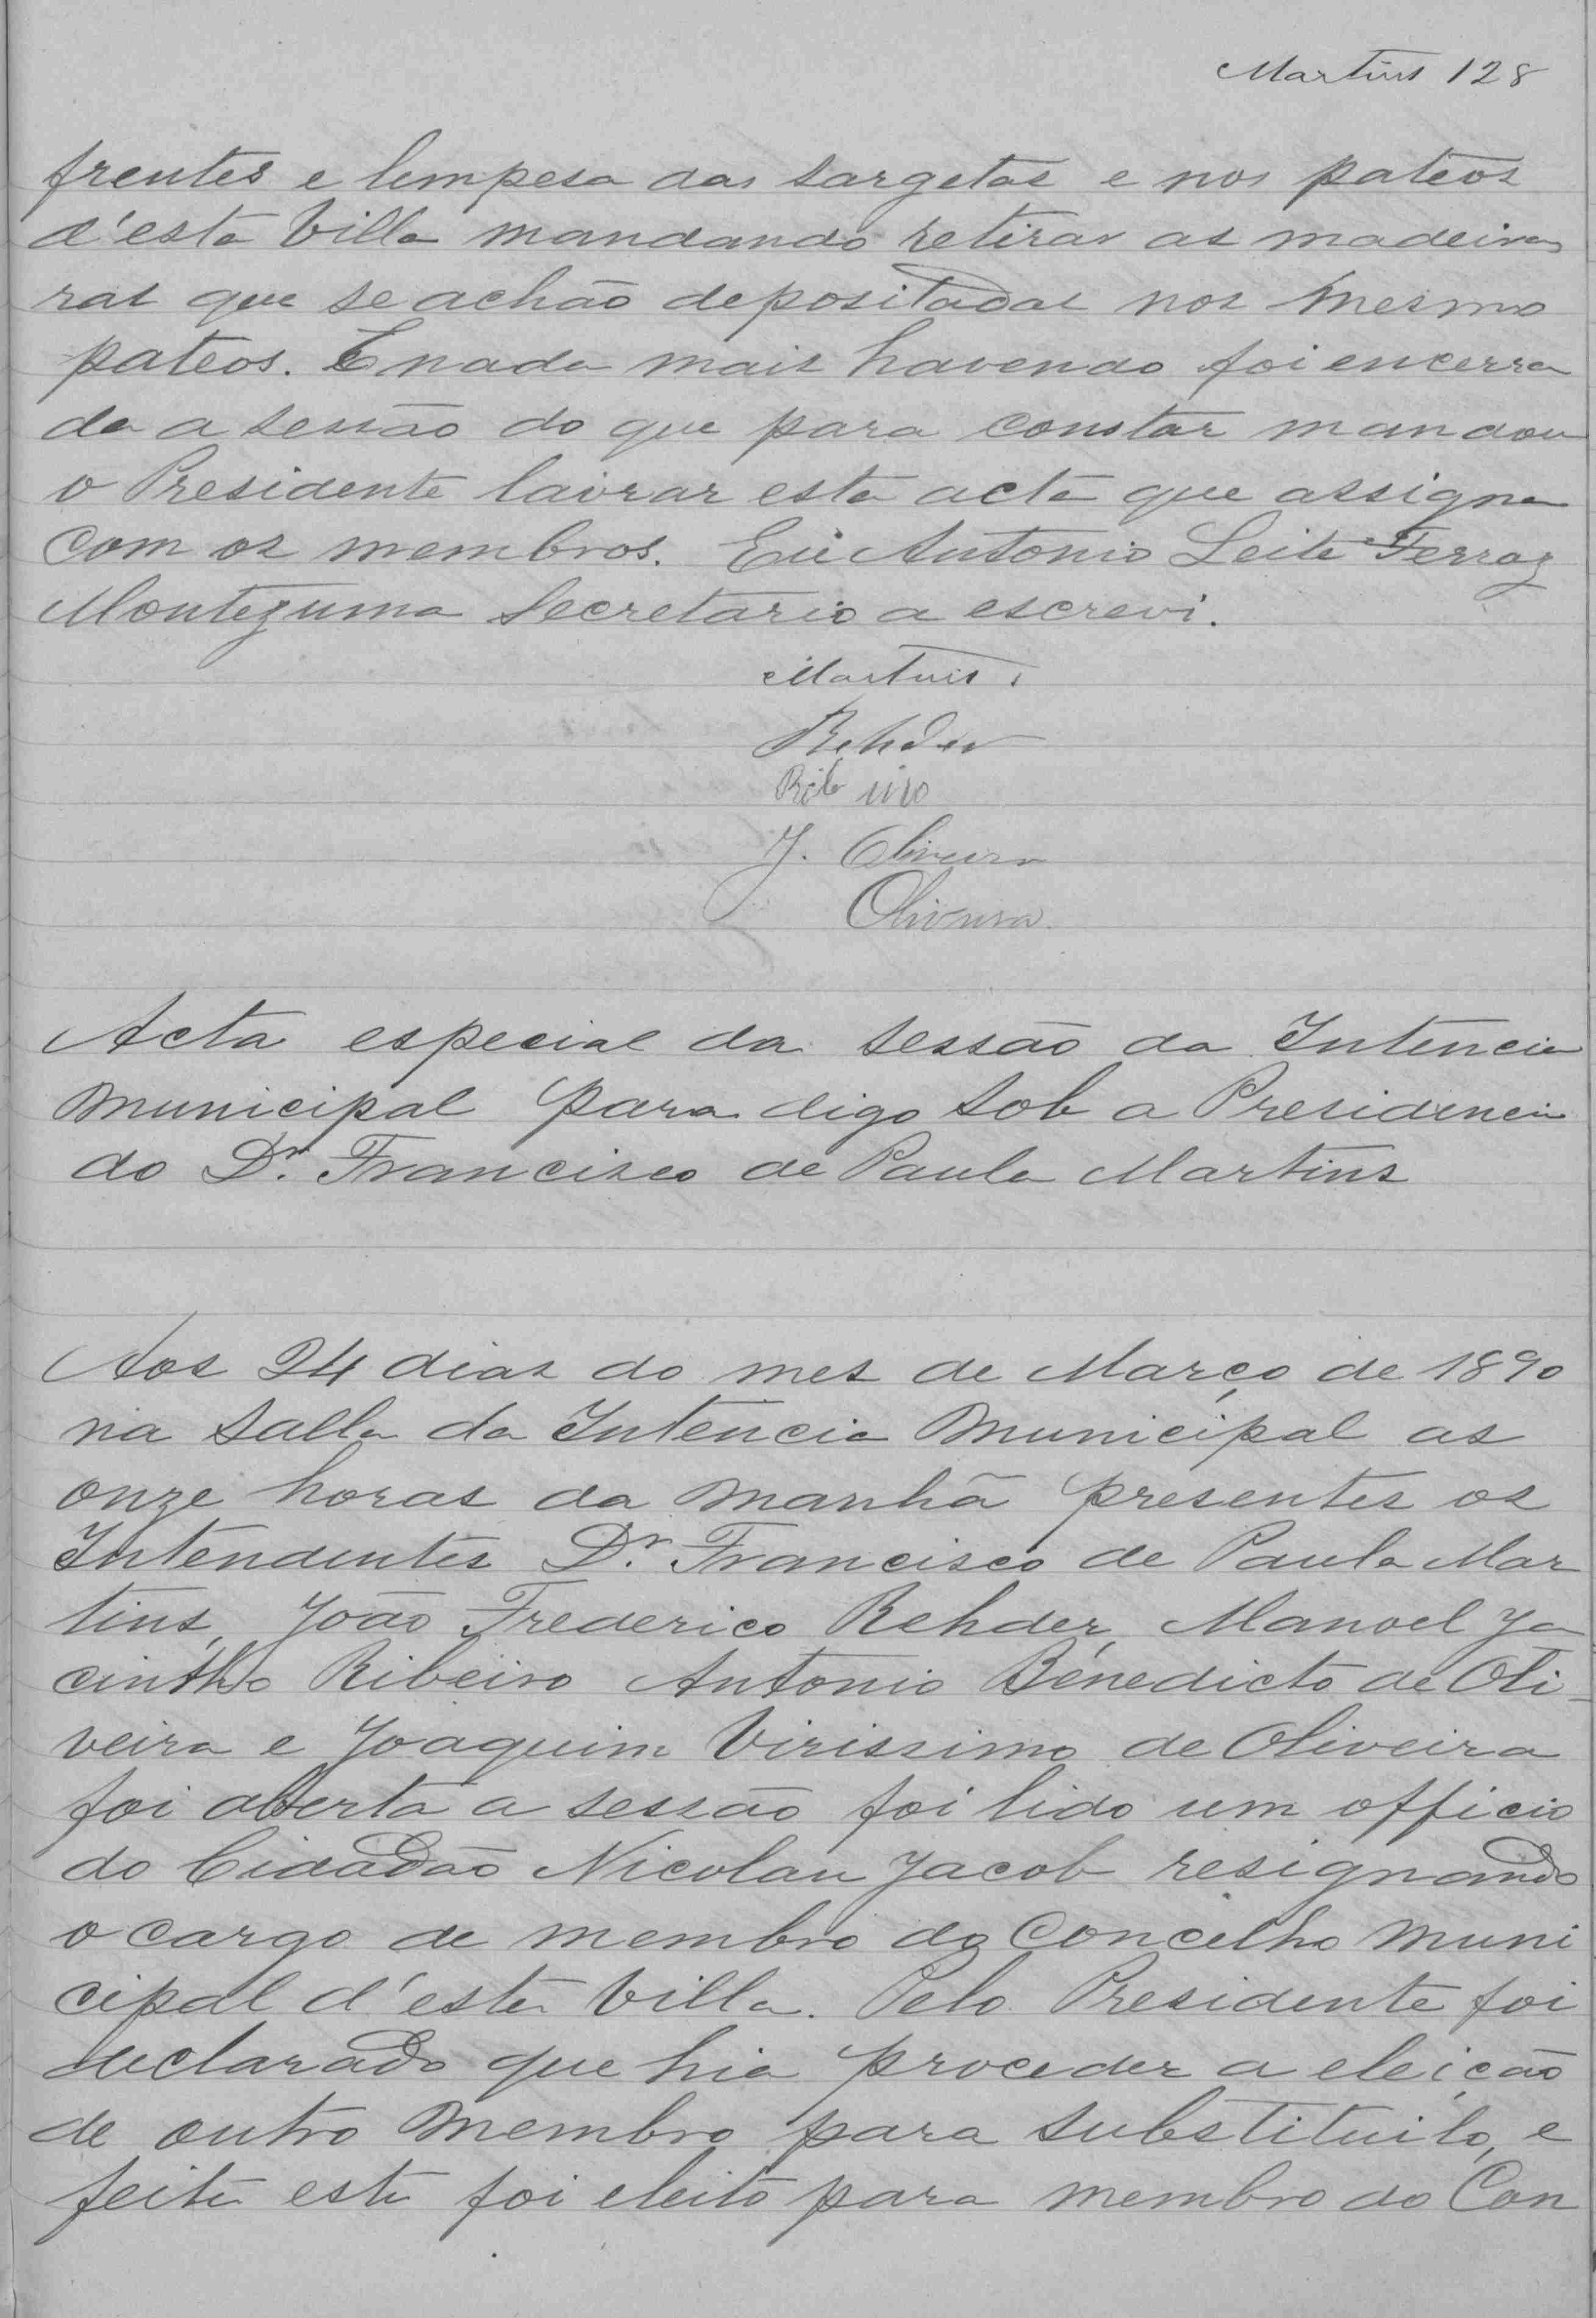 Martins 128
frentes e limpesa das sargetas e nos pateos
d'esta Villa mandando retirar as madeiras
ras que se achão depositadas nos mesmo
pateos. E nada mais havendo foi encerra
da a sessão do que para constar mandou
o Presidente lavrar esta acta que assigna
com os membros. Eu Antonio Leite Ferraz
Montezuma Secretario a escrevi.
Martins.
Rehder
Ribeiro
J. Oliveira
Oliveira
Acta especial da sessão da Intencia
Municipal para digo sob a Presidencia
do Dr. Francisco de Paula Martins
Aos 24 dias do mes de Março de 1890
na salla da Intencia Municipal as
onze horas da manhã presentes os
Intendentes Dr. Francisco de Paula Mar
tins, João Frederico Rehder, Manoel Ja
cintho Ribeiro Antonio Benedicto de Oli-
veira e Joaquim Virissimo de Oliveira
foi aberta a sessão foi lido um officio
do Cidadão Nicolau Jacob resignando
o cargo de membro do Concelho Muni
cipal d'esta Villa. Pelo Presidente foi
declarado que hia proceder a eleição
de outro membro para substituilo, e
feita esta foi eleito para membro do Con